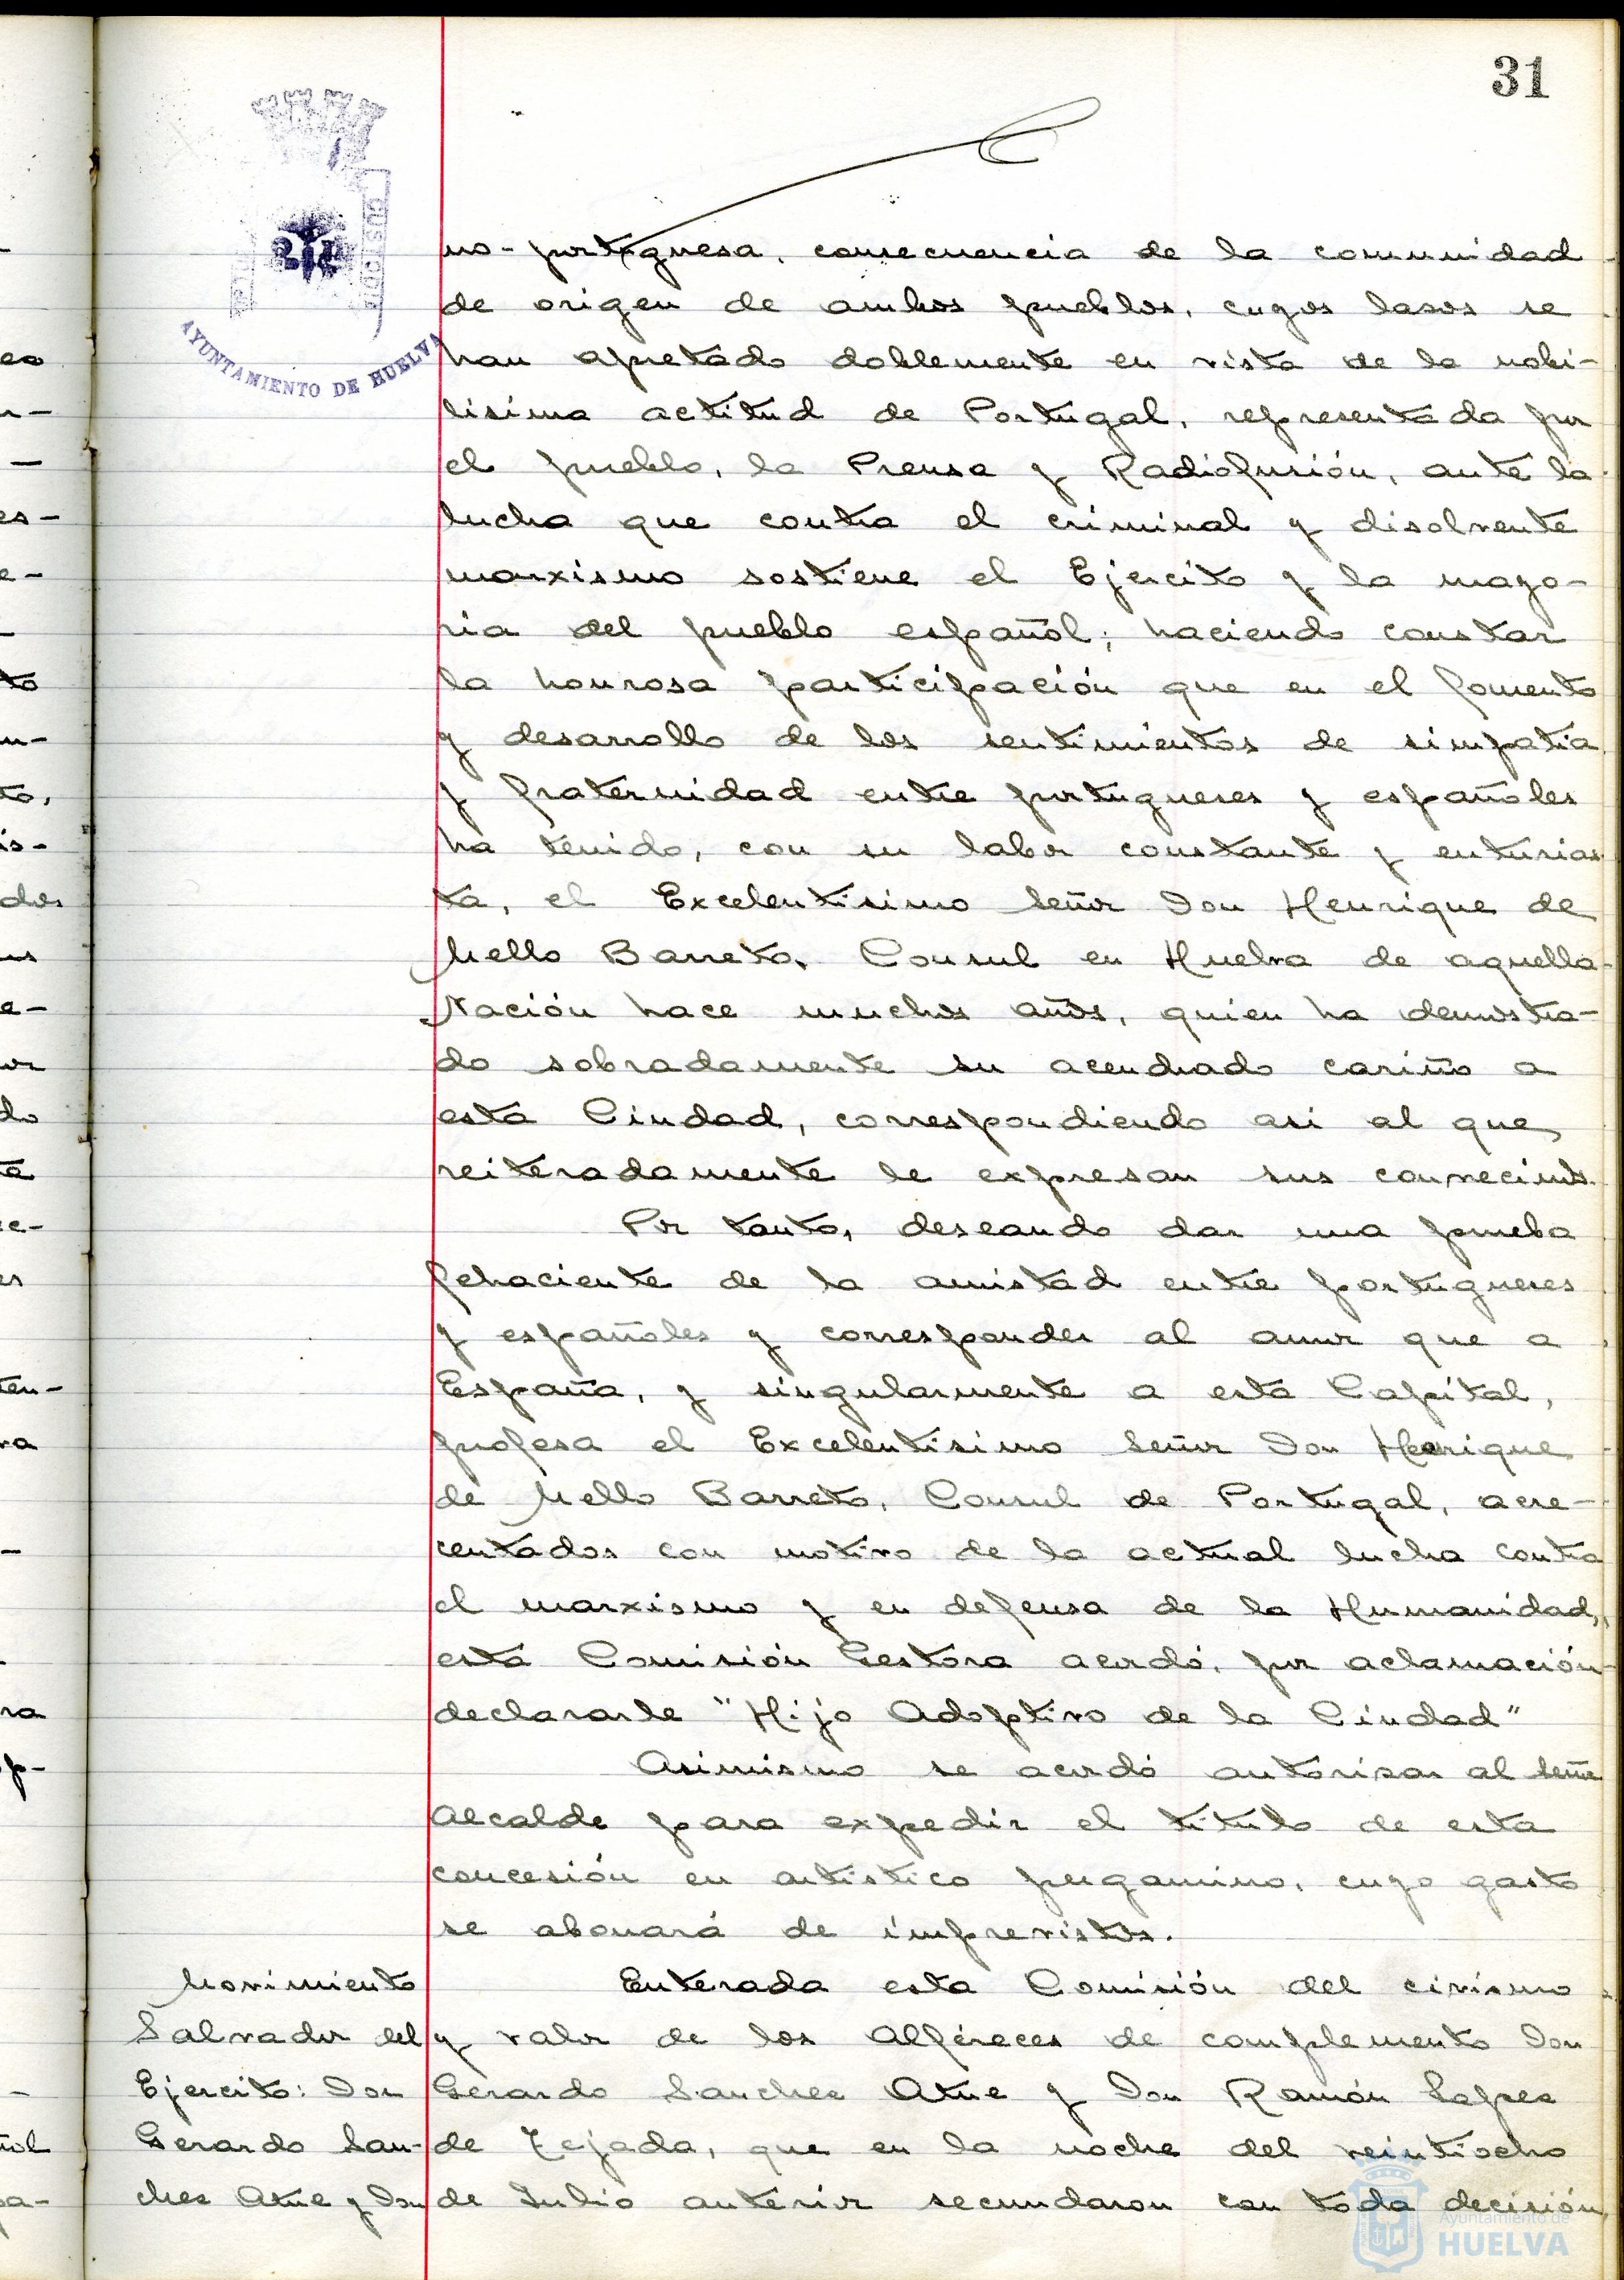 31
AYUNTAMIENTO DE HUELVA
no-portuguesa, consecuencia de la comunidad
de origen de ambos pueblos, cuyos lasos se
han apretado doblemente en vista de la nobi-
lisima actitud de Portugal, representada por
el pueblo, la Prensa y Radiofusión, ante la
lucha que contra el criminal y disolvente
marxismo sostiene el Ejercito y la mayo-
ria del pueblo español; haciendo constar
la honrosa participación que en el fomento
y desarrollo de los sentimientos de simpatia
y fraternidad entre portugueses y españoles
ha tenido, con su labor constante y entusias
ta, el Excelentisimo Señor Don Henrique de
Mello Barreto, Consul en Huelva de aquella
Nación hace muchos años, quien ha demostra-
do sobradamente su acendrado cariño a
esta Ciudad, correspondiendo asi al que
reiteradamente le expresan sus convecinos.
Por tanto, deseando dar una prueba
fehaciente de la amistad entre portugueses
y españoles y corresponder al amor que a
España, y singularmente a esta Capital,
profesa el Excelentisimo Señor Don Henrique
de Mello Barreto, Consul de Portugal, acre-
centados con motivo de la actual lucha contra
el marxismo y en defensa de la Humanidad,
esta Comisión Gestora acordó, por aclamación
declararle "Hijo Adoptivo de la Ciudad"
Asimismo se acordó autorisar al Señor
Alcalde para expedir el titulo de esta
concesión en artistico pergamino, cuyo gasto
se abonará de imprevistos.
Movimiento
Salvador del
Ejercito: Don
Gerardo San-
ches Atue y Don
Enterada esta Comisión del civismo
y valor de los Alféreces de complemento Don
Gerardo Sanches Atue y Don Ramón Lopes
de Tejada, que en la noche del veintiocho
de Julio anterior secundaron con toda decisión,
Ayuntamiento de
HUELVA